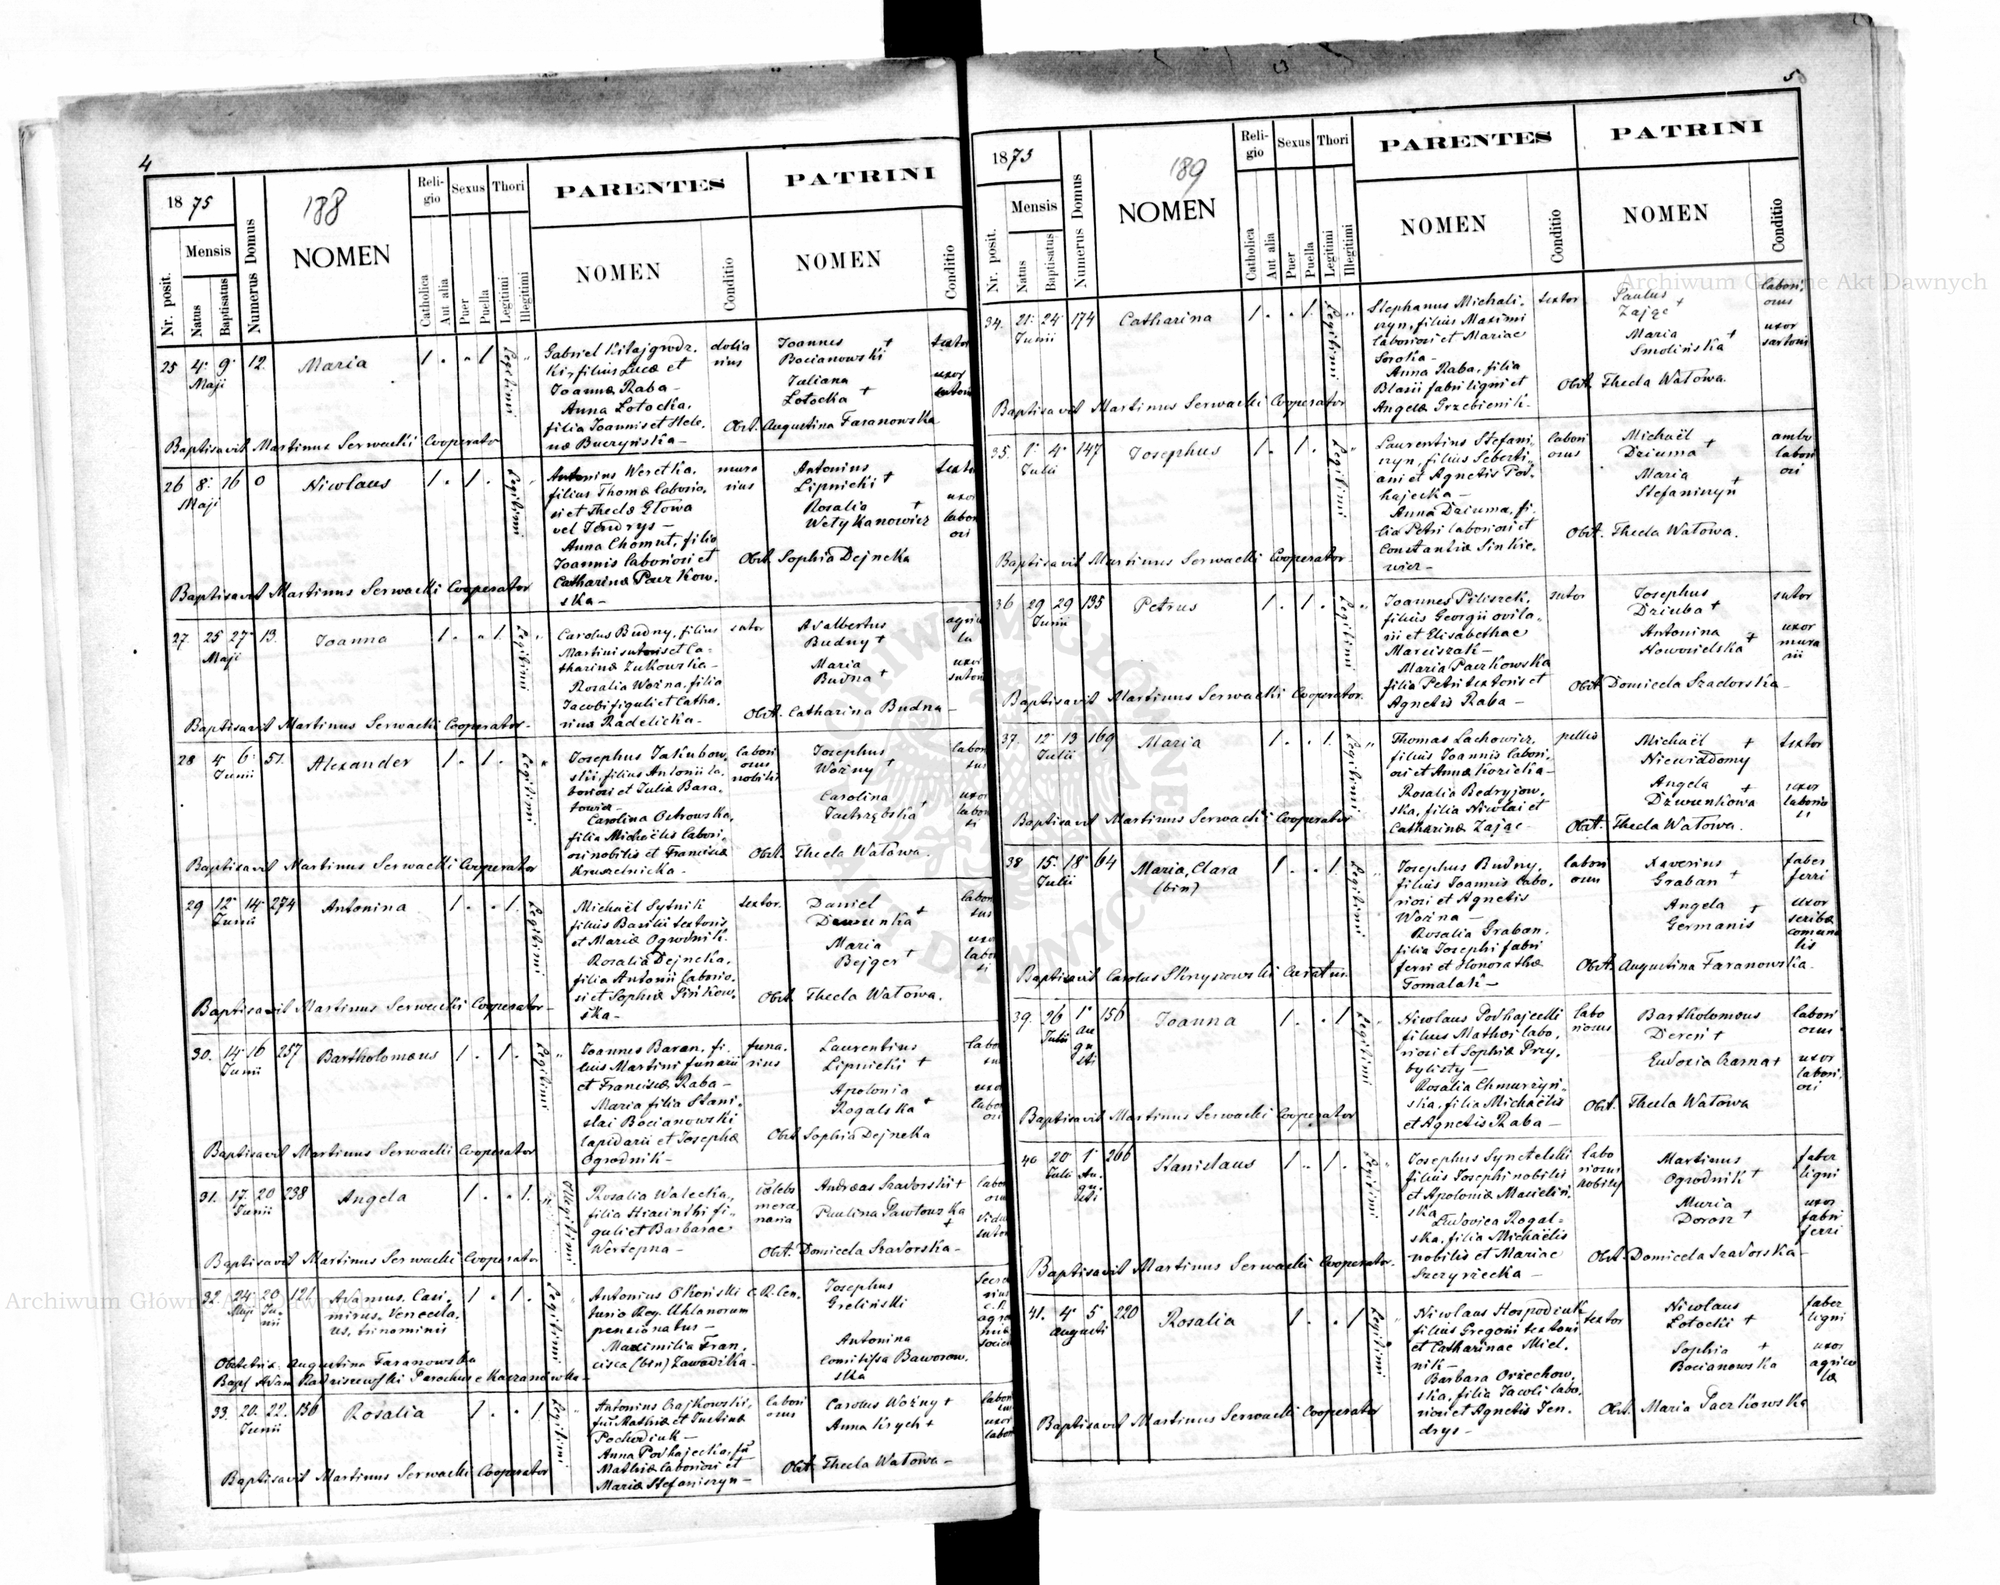 4
1875
188
Nr. posit.
Mensis
Natus
Baptisatus
Numerus Domus
NOMEN
Religio
Catholica
Aut alia
Sexus
Puer
Puella
Thori
Legitimi
Illegitimi
PARENTES
NOMEN
Conditio
PATRINI
NOMEN
Conditio
25 4. 9. Maji 12. Maria 1 . „ 1 Legitimi
Gabriel Kitajgrodz-
ki, filius Lucæ et
Joannæ Raba —
Anna Łotocka,
filia Joannis et Hele-
næ Buczyńska —
dolia
rius
Joannes
Bocianowski +
Juliana
Łotocka +
Obst. Augustina Faranowska
Baptisavit Martinus Serwacki Cooperator
26 8. 16 Maji 0 Nicolaus 1 . 1 . Legitimi
Antonius Weretka,
filius Thomæ laborio-
si et Theclæ Głowa
vel Jendrys —
Anna Chomut, filia
Joannis laboriosi et
Catharinæ Paczkow-
ska —
mura
rius
Antonius
Lipnicki +
Rosalia +
Wetykanowicz
Obst. Sophia Dejneka
Baptisavit Martinus Serwacki Cooperator
27. 25 27 Maji 13. Joanna 1 . „ 1. Legitimi
Carolus Budny, filius
Martini sutoris et Ca-
tharinæ Zukowska —
Rosalia Woźna, filia
Jacobi figuli et Catha-
rinæ Radelicka —
sutor
Adalbertus
Budny +
Maria
Budna +
Obst. Catharina Budna —
Baptisavit Martinus Serwacki Cooperator —
28 4 6 Junii 51. Alexander 1 . 1 . Legitimi
Josephus Jakubow-
ski, filius Antonii la-
boriosi et Julia Bara-
nowicz —
Carolina Ostrowska,
filia Michaëlis labori-
osi nobilis et Franciscæ
Kruszelnicka —
labori
osus
nobilis
Josephus
Woźny +
Carolina
Jastrzębska +
Obst. Thecla Watowa.
Baptisavit Martinus Serwacki Cooperator
29 12 14 Junii 274 Antonina 1 . . 1. Legitimi
Michaël Sytnik
filius Basilii textoris
et Mariæ Ogrodnik.
Rosalia Dejneka,
filia Antonii laborio-
si et Sophiæ Pińkow-
ska —
textor.
Daniel
Dzwunka +
Maria
Bejger +
Obst. Thecla Watowa.
Baptisavit Martinus Serwacki Cooperator —
30. 14 16 Junii 257 Bartholomæus 1 . 1 . Legitimi
Joannes Baran, fi-
lius Martini funarii
et Franciscæ Raba —
Maria filia Stani-
slai Bocianowski
lapidarii et Josephæ
Ogrodnik —
funa-
rius
Laurentius
Lipnicki +
Apolonia
Rogalska +
Obst. Sophia Dejneka
Baptisavit Martinus Serwacki Cooperator
31. 17. 20 Junii 238 Angela 1 . . 1. Illegitimi
Rosalia Walecka,
filia Hiacinthi fi-
guli et Barbarae
Wertepna —
cœlebs
merce-
naria
Andreas Szadorski +
Paulina Pawłowska +
Obst. Domicela Szadorska —
Baptisavit Martinus Serwacki Cooperator.
32. 24 Maji 20 Ju-
nii 121. Adamus, Casi-
mirus, Vencesla-
us, trinominis 1 . 1 . Legitimi
Antonius Okoński C. R. Cen-
turio Reg. Uhlanorum
pensionatus —
Maximilia Fran-
cisca (bin) Zawadzka —
Josephus
Greliński
Antonina
Comitissa Baworow-
ska
Obstetrix. Augustina Faranowska
Bapt. Adam Radziszewski Parochus e Kaczanówka —
33. 20. 22. Junii 156 Rosalia 1 . . 1. Legitimi
Antonius Czajkowski,
fil. Mathiæ et Justinæ
Pochodiuk —
Anna Podhajecka, fa
Mathiæ laboriosi et
Mariæ Stefaniszyn —
labori
osus
Carolus Woźny +
Anna Krych +
Obst. Thecla Watowa —
Baptisavit Martinus Serwacki Cooperator
5
1875
189
Nr. posit.
Mensis
Natus
Baptisatus
Numerus Domus
NOMEN
Religio
Catholica
Aut alia
Sexus
Puer
Puella
Thori
Legitimi
Illegitimi
PARENTES
NOMEN
Conditio
PATRINI
NOMEN
Conditio
34. 21. 24. Junii 174 Catharina 1 . . 1. Legitimi
Stephanus Michali-
szyn, filius Maximi
laboriosi et Mariae
Soroka —
Anna Raba, filia
Blasii fabri ligni et
Angelæ Grzebienik —
textor
Paulus +
Zając
Maria +
Smolińska
labori-
osus
uxor
sartoris
Obst. Thecla Watowa.
Baptisavit Martinus Serwacki Cooperator
35. 1. 4. Julii 147 Josephus 1 . 1 . Legitimi
Laurentius Stefani-
szyn, filius Sebasti-
ani et Agnetis Pod-
hajecka —
Anna Dziuma, fi-
lia Petri laboriosi et
Constantiæ Sinkie-
wicz —
labori
osus
Michaël
Dziuma +
Maria
Stefaniszyn +
ambo
labori
osi
Obst. Thecla Watowa.
Baptisavit Martinus Serwacki Cooperator
36 29 29 Junii 135 Petrus 1 . 1 . Legitimi
Joannes Piliszek,
filius Georgii
et Elisabethae
Marciszak —
Maria Paczkowska
filia Petri textoris et
Agnetis Raba —
sutor
Josephus
Dziuba +
Antonina +
Nowosielska
sutor
uxor
mura
rii
Obst. Domicela Szadorska —
Baptisavit Martinus Serwacki Cooperator.
37. 12 13 Julii 169 Maria 1 . . 1. Legitimi
Thomas Lachowicz,
filius Joannis labori-
osi et Annæ Kozicka —
Rosalia Bedryjow-
ska, filia Nicolai et
Catharinæ Zając —
pellio
Michaël +
Niewiadomy
Angela +
Dzwunkowa
textor
uxor
laborio
si
Obst. Thecla Watowa.
Baptisavit Martinus Serwacki Cooperator
38 15. 18 Julii 64 Maria, Clara
(bin) 1 . . 1 Legitimi
Josephus Budny,
filius Joannis labo-
riosi et Agnetis
Woźna —
Rosalia Graban,
filia Josephi fabri
ferri et Honorathæ
Tomalak —
labori
osus
Xaverius
Graban +
Angela +
Germanis
faber
ferri
uxor
scribæ
comuna
lis
Obst. Augustina Faranowska.
Baptisavit Carolus Skryszowski Curatus.
39. 26 Julii 1 Au
gu
sti 156 Joanna 1 . . 1 Legitimi
Nicolaus Podhajecki
filius Mathæi labo-
riosi et Sophiæ Przy-
bylisty —
Rosalia Chmurzyń-
ska, filia Michaëlis
et Agnetis Raba —
labo
riosus
Bartholomeus
Dereń +
Eudoxia Czarna +
labori
osus
uxor
labori-
osi
Obst. Thecla Watowa
Baptisavit Martinus Serwacki Cooperator
40 20 Julii 1 Au-
gu-
sti 266 Stanislaus 1 . 1 . Legitimi
Josephus Synetelski
filius Josephi nobilis
et Apoloniæ Macieliń-
ska
Ludovica Rogal-
ska, filia Michaëlis
nobilis et Mariae
Szczyrzecka —
labo
riosus
nobilis
Martinus
Ogrodnik +
Maria
Dorosz +
faber
ligni
uxor
fabri
ferri
Obst. Domicela Szadorska —
Baptisavit Martinus Serwacki Cooperator.
41. 4 5 Augusti 220 Rosalia 1 . . 1 Legitimi
Nicolaus Hospodiuk
filius Gregorii textoris
et Catharinae Miel-
nik —
Barbara Orzechow-
ska, filia Jacobi labo-
riosi et Agnetis Jen-
drys —
textor
Nicolaus
Łotocki +
Sophia +
Bocianowska
faber
ligni
uxor
agrico
læ
Obst. Maria Paczkowska
Baptisavit Martinus Serwacki Cooperator
Archiwum Główne Akt Dawnych
Archiwum Główne Akt Dawnych
ARCHIWUM GŁÓWNE AKT DAWNYCH